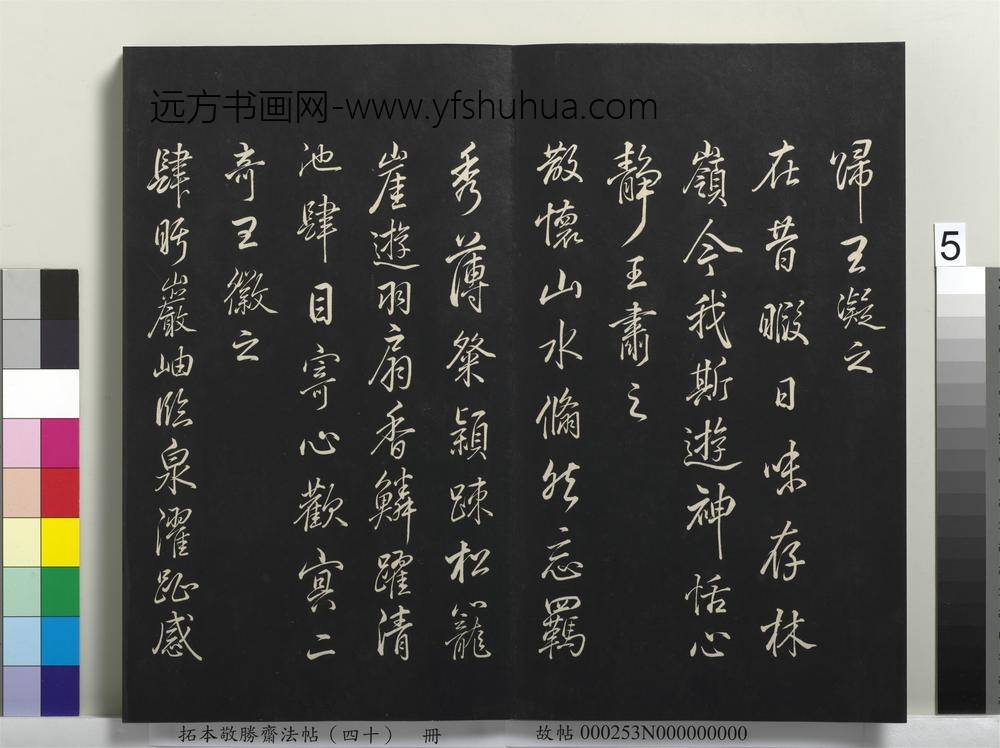 远方书画网-www.yfshuhua.com
歸王凝之
在昔暇日味存林
嶺今我斯遊神恬心
静王肅之
散懷山水翛然忘羈
秀薄粲穎疎松籠
崖遊羽扇香鱗躍清
池肆目寄心歡寘二
奇王徽之
肆盻巖岫臨泉濯趾感
5
拓本敬勝齋法帖（四十） 冊
故帖 000253N000000000